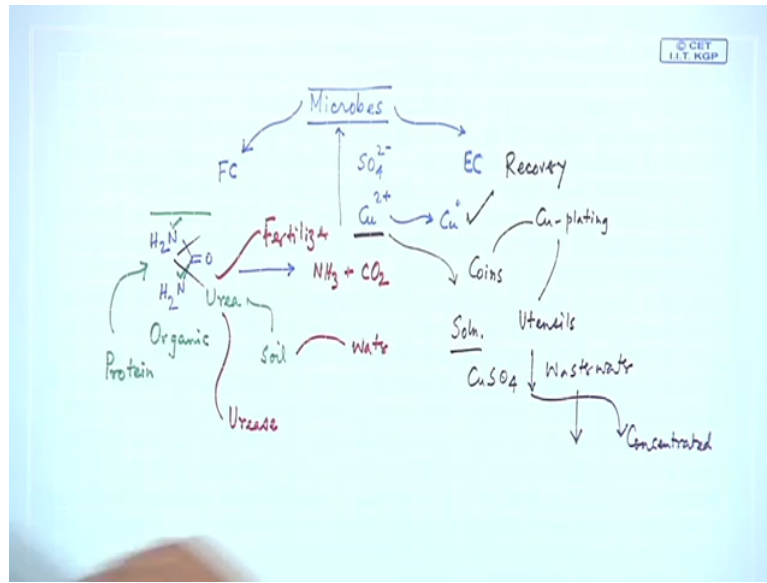 © CET
I.I.T. KGP
Microbes
FC
SO₄²⁻
EC
Recovery
Cu²⁺
Cu°
Cu-plating
H₂N
=O
Fertilizer
NH₃ + CO₂
Coins
H₂N
Urea
Organic
Soil
Water
Soln.
Utensils
Protein
CuSO₄
Wastewater
Urease
Concentrated